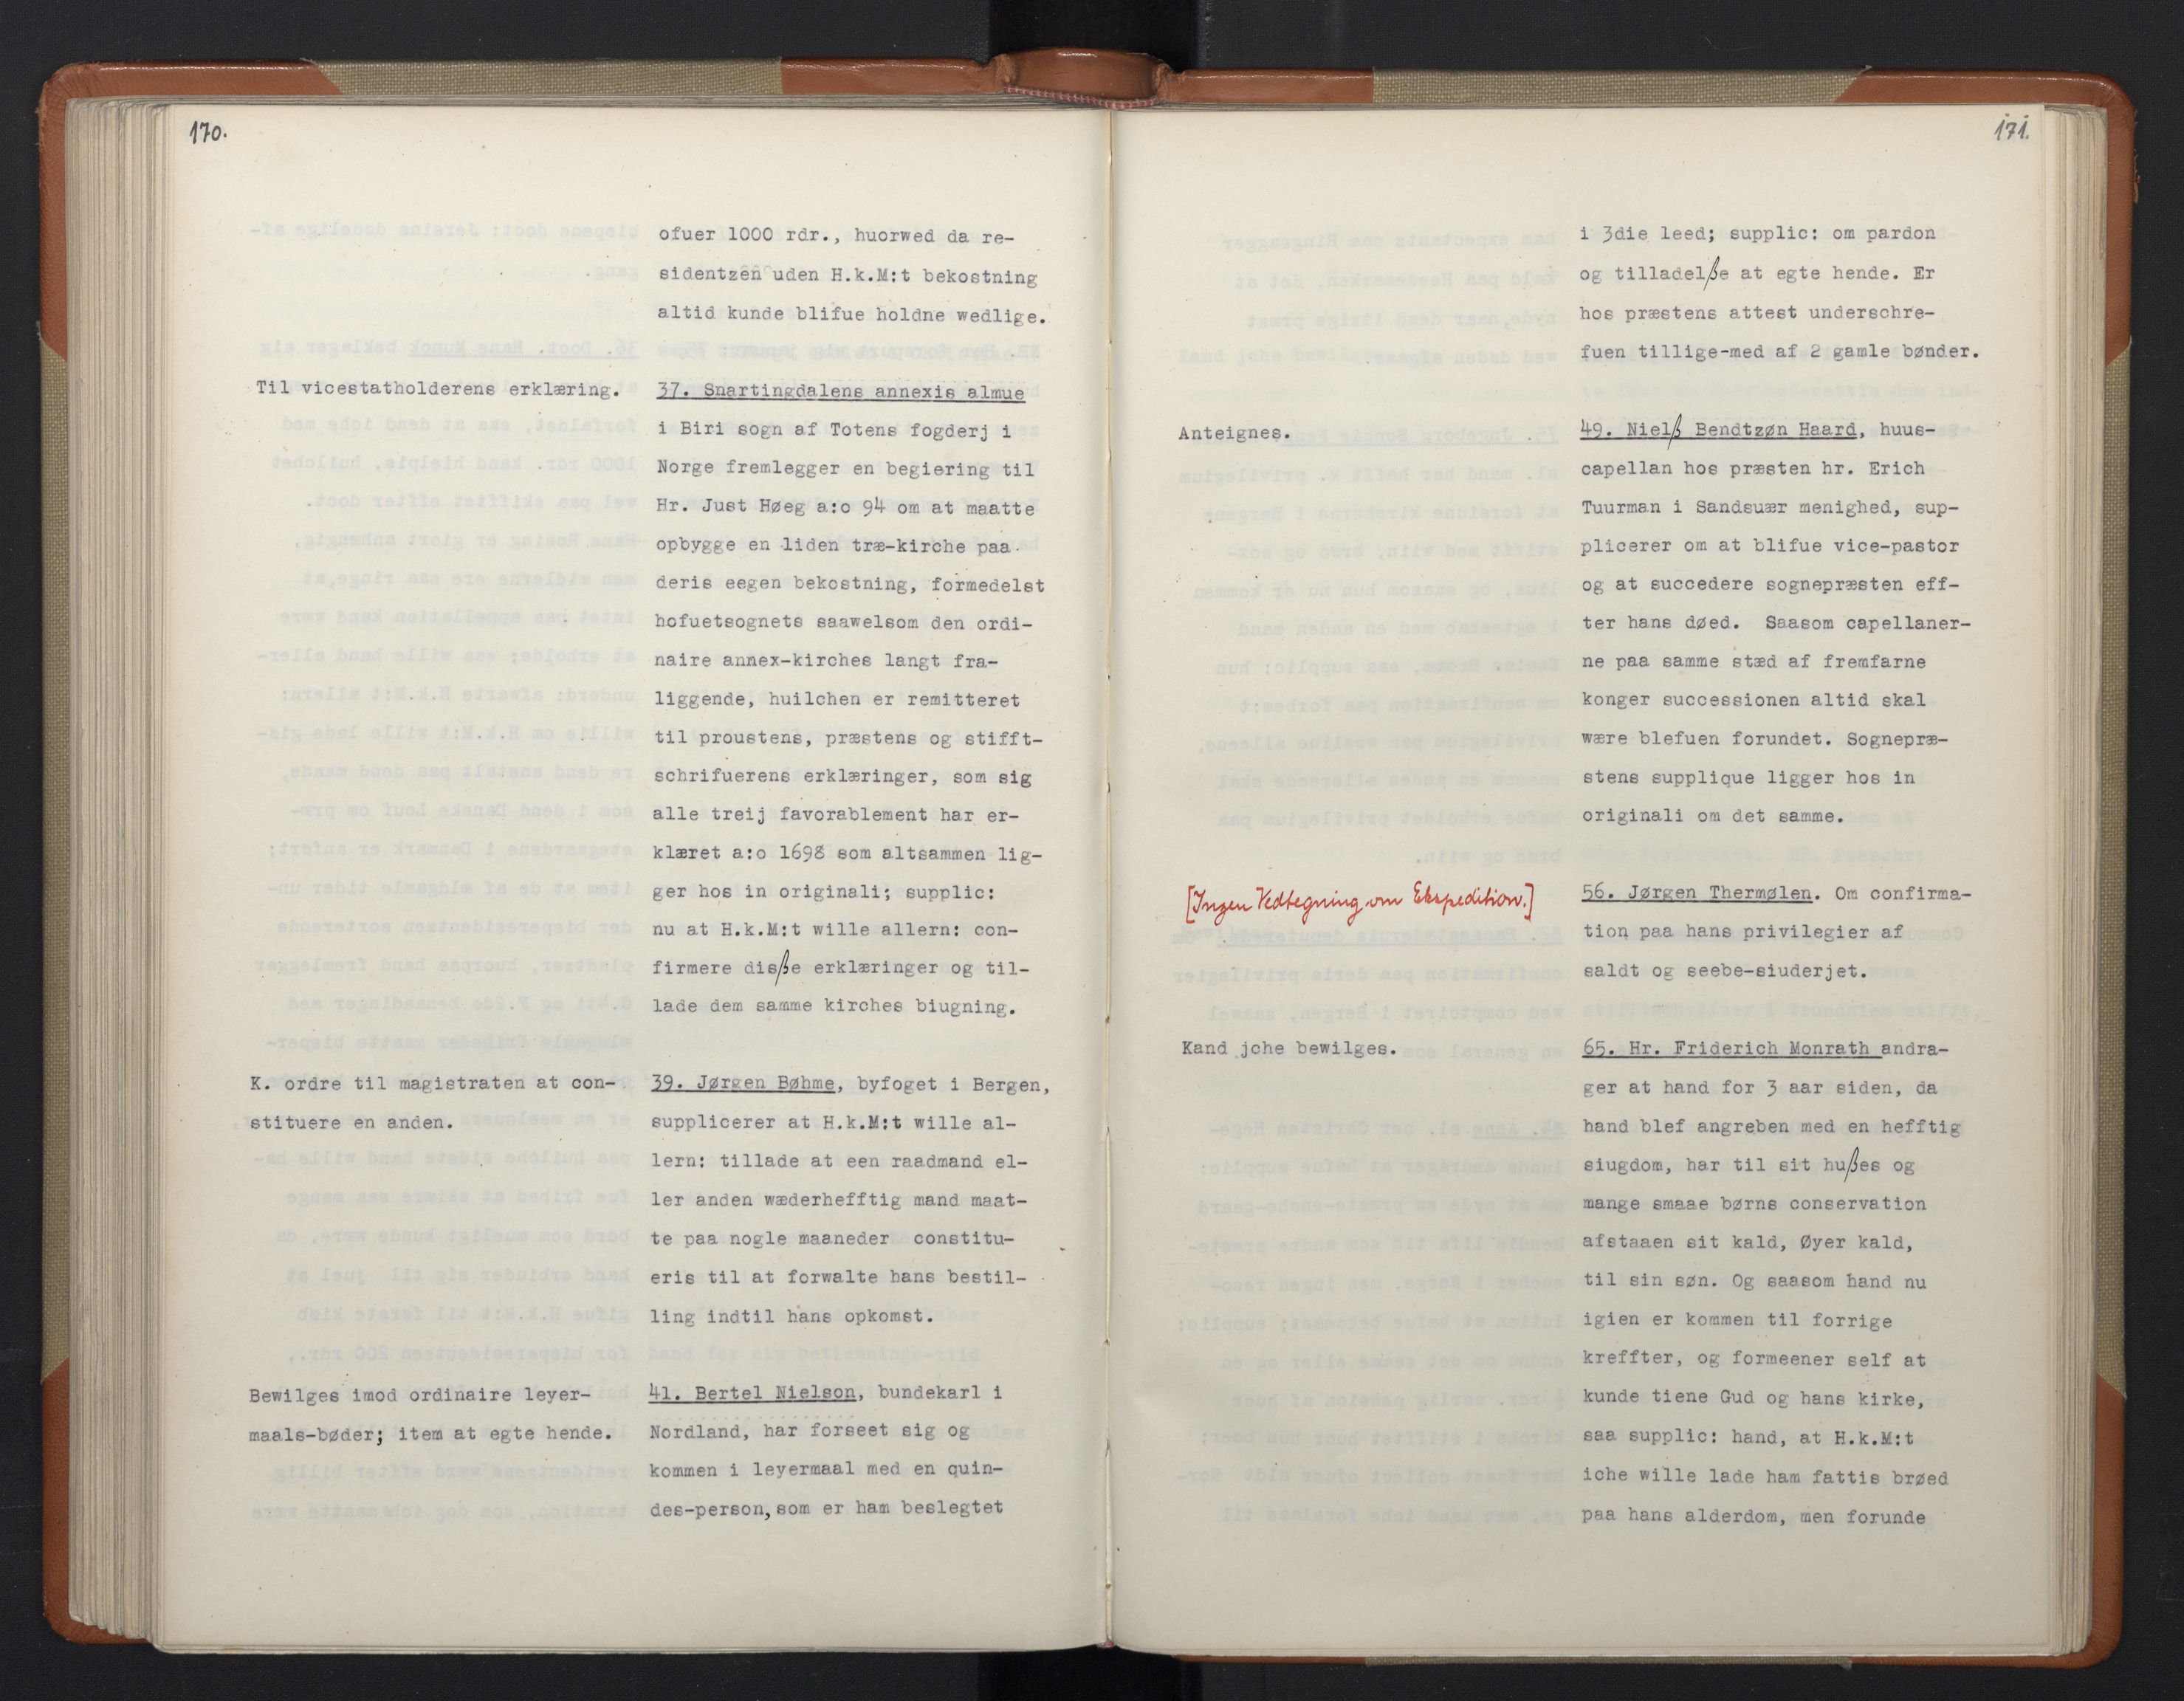 170.
ofuer 1000 rdr., huorwed da re-
sidentzen uden H.k.M:t bekostning
altid kunde blifue holdne wedlige.
Til vicestatholderens erklæring.
37. Snartingdalens annexis almue
i Biri sogn af Totens fogderj i
Norge fremlegger en begiering til
Hr. Just Høeg a:o 94 om at maatte
opbygge en liden træ-kirche paa
deris eegen bekostning, formedelst
hofuetsognets saawelsom den ordi-
naire annex-kirches langt fra-
liggende, huilchen er remitteret
til proustens, præstens og stifft-
schrifuerens erklæringer, som sig
alle treij favorablement har er-
klæret a:o 1698 som altsammen lig-
ger hos in originali; supplic:
nu at H.k.M:t wille allern: con-
firmere disße erklæringer og til-
lade dem samme kirches biugning.
K. ordre til magistraten at con-
stituere en anden.
39. Jørgen Bøhme, byfoget i Bergen,
supplicerer at H.k.M:t wille al-
lern: tillade at een raadmand el-
ler anden wæderhefftig mand maat-
te paa nogle maaneder constitu-
eris til at forwalte hans bestil-
ling indtil hans opkomst.
Bewilges imod ordinaire leyer-
maals-bøder; item at egte hende.
41. Bertel Nielson, bundekarl i
Nordland, har forseet sig og
kommen i leyermaal med en quin-
des-person, som er ham beslegtet
171.
i 3die leed; supplic: om pardon
og tilladelße at egte hende. Er
hos præstens attest underschre-
fuen tillige-med af 2 gamle bønder.
Anteignes.
49. Nielß Bendtzøn Haard, huus-
capellan hos præsten hr. Erich
Tuurman i Sandsuær menighed, sup-
plicerer om at blifue vice-pastor
og at succedere sognepræsten eff-
ter hans døed. Saasom capellaner-
ne paa samme stæd af fremfarne
konger successionen altid skal
wære blefuen forundet. Sognepræ-
stens supplique ligger hos in
originali om det samme.
[Ingen Vedtegning om Ekspedition.]
56. Jørgen Thermølen. Om confirma-
tion paa hans privilegier af
saldt og seebe-siuderjet.
Kand jche bewilges.
65. Hr. Friderich Monrath andra-
ger at hand for 3 aar siden, da
hand blef angreben med en hefftig
siugdom, har til sit hußes og
mange smaae børns conservation
afstaaen sit kald, Øyer kald,
til sin søn. Og saasom hand nu
igien er kommen til forrige
kreffter, og formeener self at
kunde tiene Gud og hans kirke,
saa supplic: hand, at H.k.M:t
iche wille lade ham fattis brøed
paa hans alderdom, men forunde